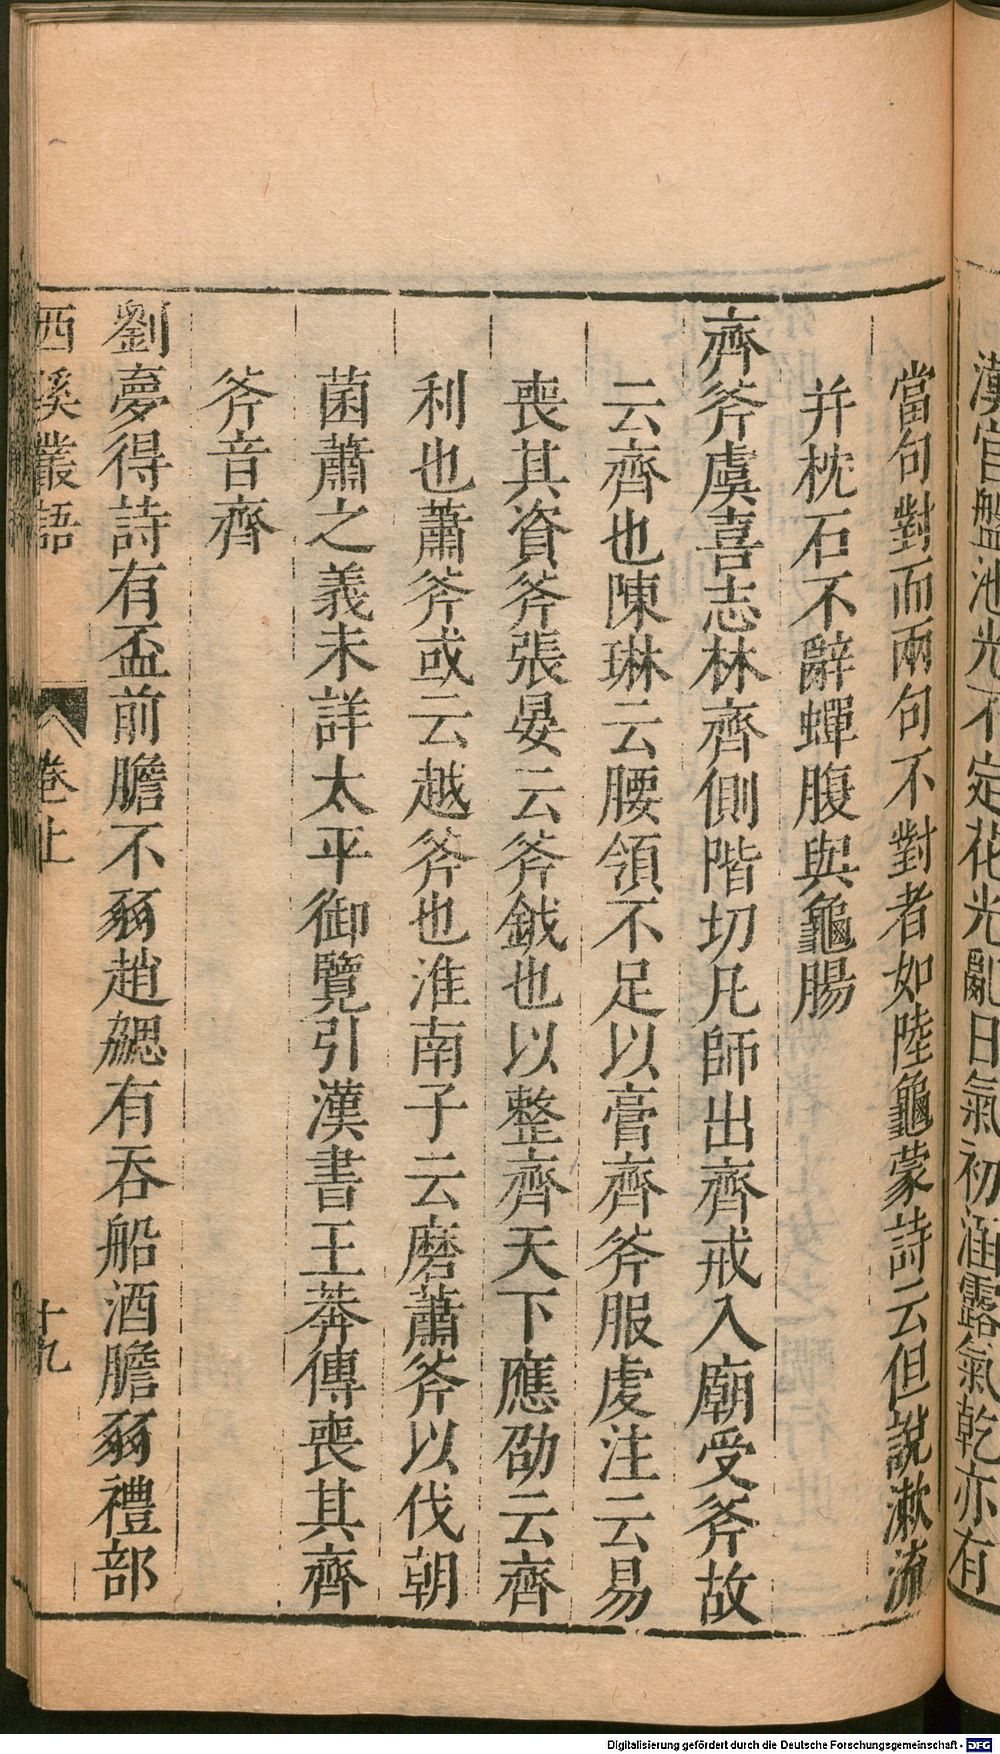 漢官盤池光不定花光亂日氣初涵露氣乾亦有
當句對而兩句不對者如陸龜蒙詩云但說漱流
并枕石不辭蟬腹與龜腸
齊斧虞喜志林齊側階切凡師出齊戒入廟受斧故
云齊也陳琳云腰領不足以膏齊斧服虔注云易
喪其資斧張晏云斧鉞也以整齊天下應劭云齊
利也蕭斧或云越斧也淮南子云磨蕭斧以伐朝
菌蕭之義未詳太平御覽引漢書王莽傳喪其齊
斧音齊
劉夢得詩有盃前膽不豩趙勰有吞船酒膽豩禮部
西溪叢語
卷上
十九
Digitalisierung gefördert durch die Deutsche Forschungsgemeinschaft - DFG